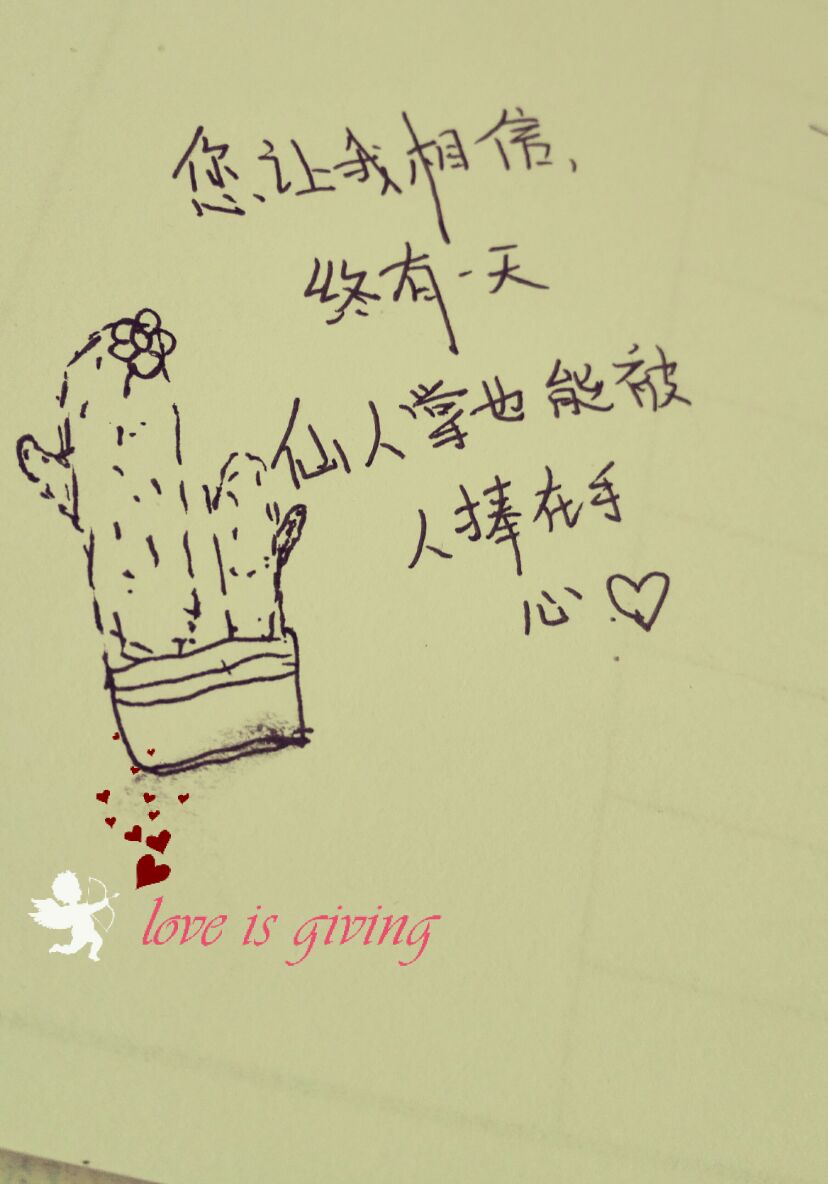 您让我相信,
终有一天
仙人掌也能被
人捧在手
心♡
love is giving